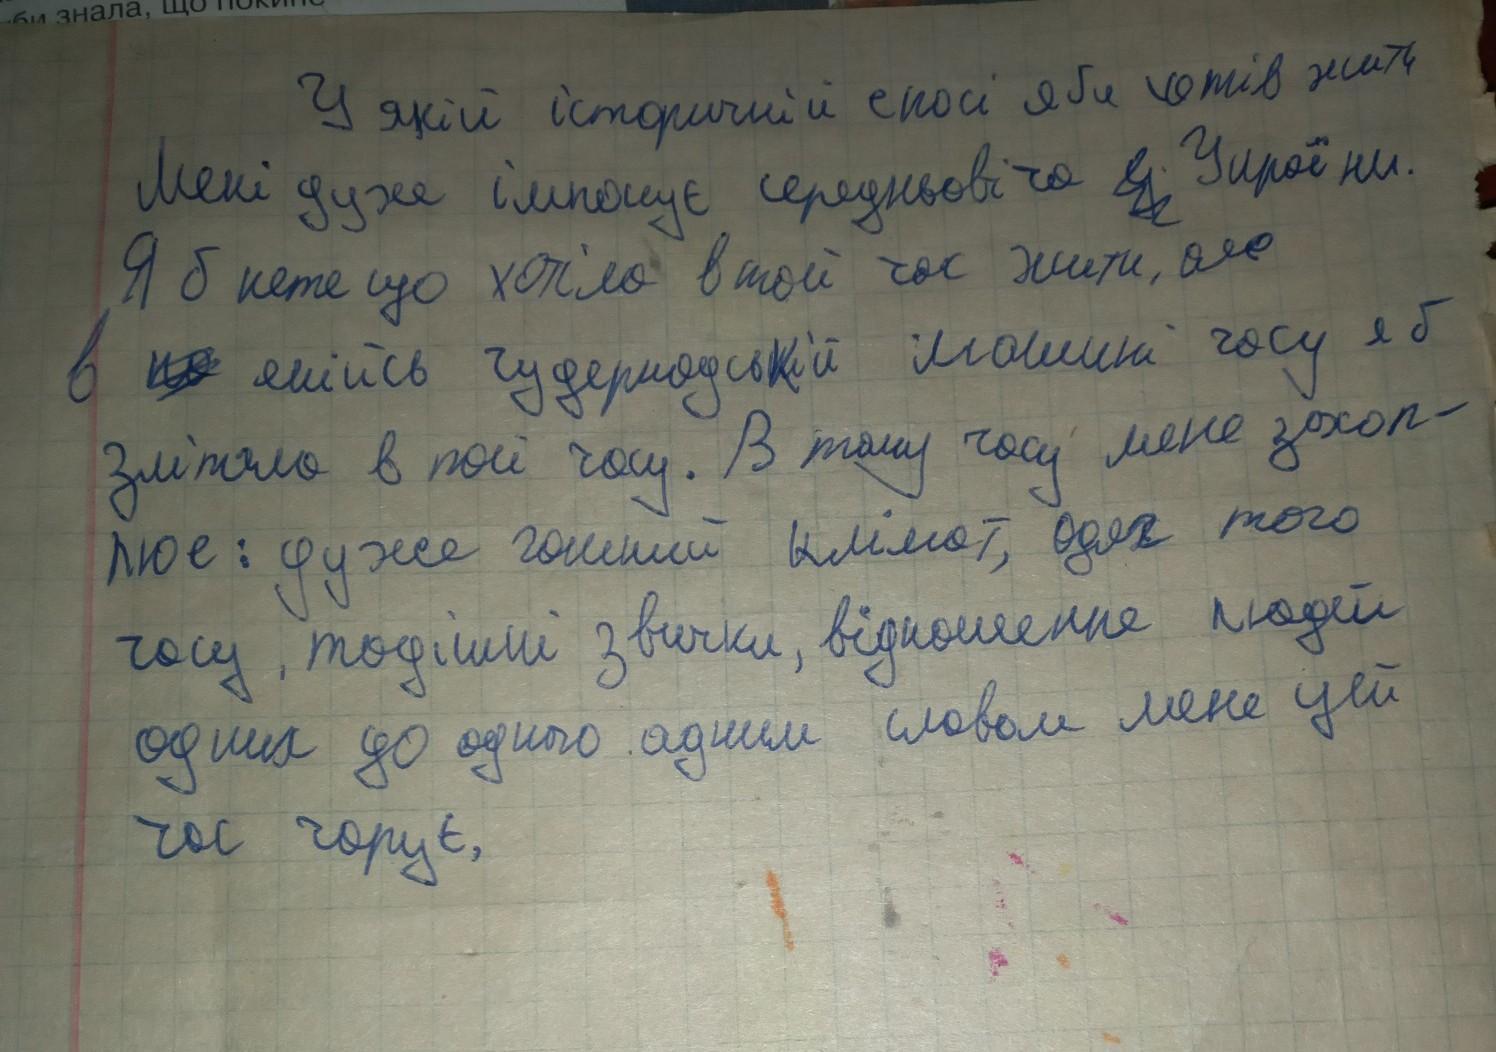 би знала, що покине
У якій історичній епосі я би хотів жить
Мені дуже імпонує середньовіча України.
Я б не те що хотіла в той час жити, але
в якійсь чудернадській машині часу я б
злітала в той часу. В тому часу мене захоп-
лює: дуже гарний клімат, одяг того
часу, тодішні звички, відношення людей
одних до одного одним словом мене цей
час чарує,